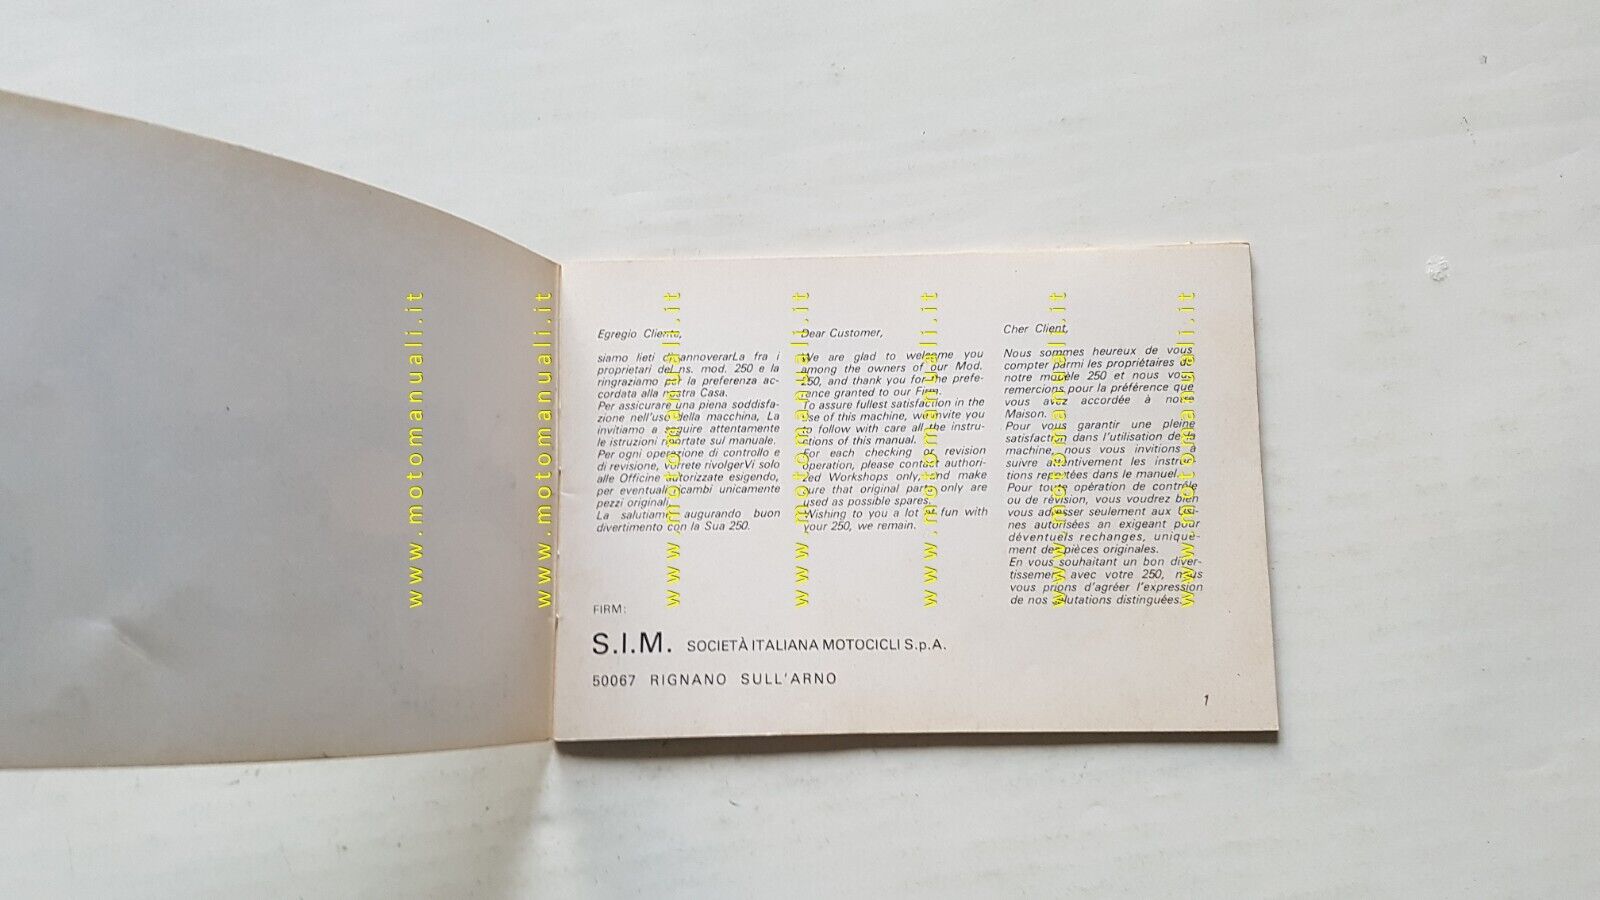 Egregio Cliente,
siamo lieti di annoverarLa fra i
proprietari del ns. mod. 250 e la
ringraziamo per la preferenza ac-
cordata alla nostra Casa.
Per assicurare una piena soddisfa-
zione nell'uso della macchina, La
invitiamo a seguire attentamente
le istruzioni riportate sul manuale.
Per ogni operazione di controllo e
di revisione, vorrete rivolgerVi solo
alle Officine autorizzate esigendo,
per eventuali ricambi unicamente
pezzi originali.
La salutiamo augurando buon
divertimento con la Sua 250.
Dear Customer,
We are glad to welcome you
among the owners of our Mod.
250, and thank you for the prefe-
rence granted to our Firm.
To assure fullest satisfaction in the
use of this machine, we invite you
to follow with care all the instru-
ctions of this manual.
For each checking or revision
operation, please contact authori-
zed Workshops only, and make
sure that original parts only are
used as possible spares.
Wishing to you a lot of fun with
your 250, we remain.
Cher Client,
Nous sommes heureux de vous
compter parmi les propriétaires de
notre modèle 250 et nous vous
remercions pour la préférence que
vous avez accordée à notre
Maison.
Pour vous garantir une pleine
satisfaction dans l'utilisation de la
machine, nous vous invitions à
suivre attentivement les instruc-
tions reportées dans le manuel.
Pour toute opération de contrôle
ou de révision, vous voudrez bien
vous adresser seulement aux Usi-
nes autorisées an exigeant pour
déventuels rechanges, unique-
ment des pièces originales.
En vous souhaitant un bon diver-
tissement avec votre 250, nous
vous prions d'agréer l'expression
de nos salutations distinguées.
FIRM:
S.I.M. SOCIETÀ ITALIANA MOTOCICLI S.p.A.
50067 RIGNANO SULL'ARNO
1
www.motomanuali.it
www.motomanuali.it
www.motomanuali.it
www.motomanuali.it
www.motomanuali.it
www.motomanuali.it
www.motomanuali.it